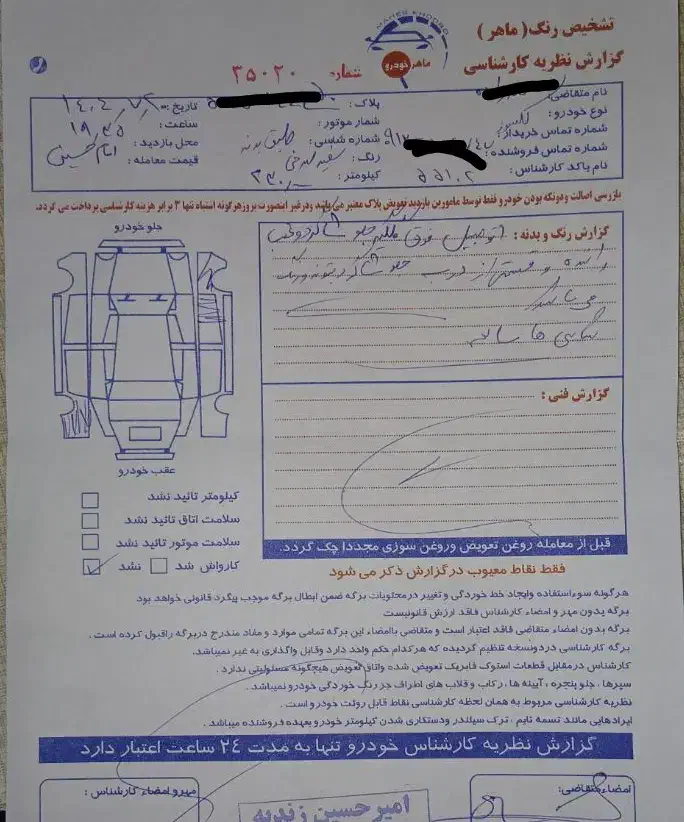 تشخیص رنگ (ماهر)
گزارش نظریه کارشناسی
MAHER KHODRO
ماهر خودرو
شماره ۳۵۰۲۰
نام متقاضی:
نوع خودرو:
شماره تماس خریدار:
شماره تماس فروشنده:
نام یا کد کارشناس: ۵۵۱.۲
پلاک:
شماره موتور:
شماره شاسی: طبق بدنه
رنگ: سفید
کیلومتر:
تاریخ:
ساعت: ۱۹/۳۵
محل بازدید: امام خمینی
قیمت معامله:
بازرسی اصالت و دوتکه بودن خودرو فقط توسط مامورین بازدید تعویض پلاک معتبر می باشد و در غیر اینصورت بروز هرگونه اشتباه تنها ۳ برابر هزینه کارشناسی پرداخت می گردد.
گزارش رنگ و بدنه : اتومبیل فوق گلگیر جلو شاگرد و عقب
راننده و قسمتی از درب جلو شاگرد
می باشد
شاسی ها سالم
جلو خودرو
عقب خودرو
گزارش فنی :
کیلومتر تائید نشد
سلامت اتاق تائید نشد
سلامت موتور تائید نشد
کارواش شد نشد
قبل از معامله روغن تعویض وروغن سوزی مجددا چک گردد.
فقط نقاط معیوب در گزارش ذکر می شود
هرگونه سوءاستفاده وایجاد خط خوردگی و تغییر در محتویات برگه ضمن ابطال برگه موجب پیگرد قانونی خواهد بود
برگه بدون مهر و امضاء کارشناس فاقد ارزش قانونیست
برگه بدون امضاء متقاضی فاقد اعتبار است و متقاضی باامضاء این برگه تمامی موارد و مفاد مندرج در برگه را قبول کرده است .
برگه کارشناسی در دو نسخه تنظیم گردیده که هرکدام حکم واحد دارد وقابل واگذاری به غیر نمیباشد.
کارشناس در مقابل قطعات استوک فابریک تعویض شده واتاق تعویض هیچگونه مسئولیتی ندارد .
سپرها ، جلو پنجره ، آیینه ها ، رکاب و قلاب های اطراف جز رنگ خوردگی خودرو نمیباشد .
نظریه کارشناسی مربوط به همان لحظه کارشناسی نقاط قابل روئت خودرو است .
ایرادهایی مانند تسمه تایم ، ترک سیلندر ودستکاری شدن کیلومتر خودرو بعهده فروشنده میباشد .
گزارش نظریه کارشناس خودرو تنها به مدت ۲۴ ساعت اعتبار دارد
امضاء متقاضی:
مهر و امضاء کارشناس :
امیرحسین زندیه